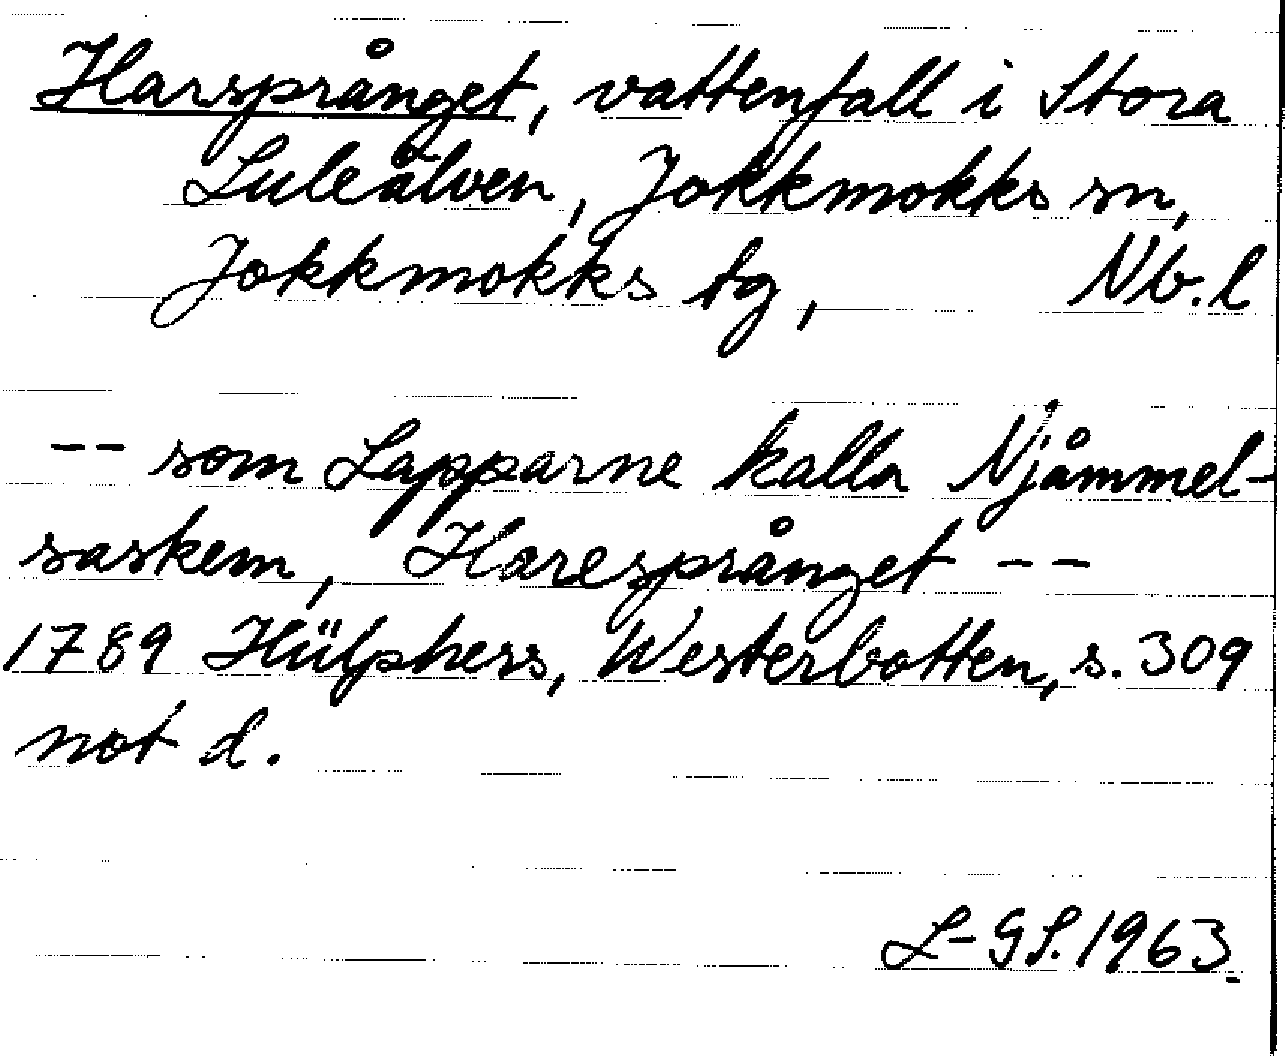 Harsprånget, vattenfall i Stora
Luleälven, Jokkmokks sn,
Jokkmokks tg, Nb. l
-- som Lapparne kalla Njåmmel-
saskem, Haresprånget --
1789 Hülphers, Westerbotten, s. 309
not d.
L-GS. 1963.